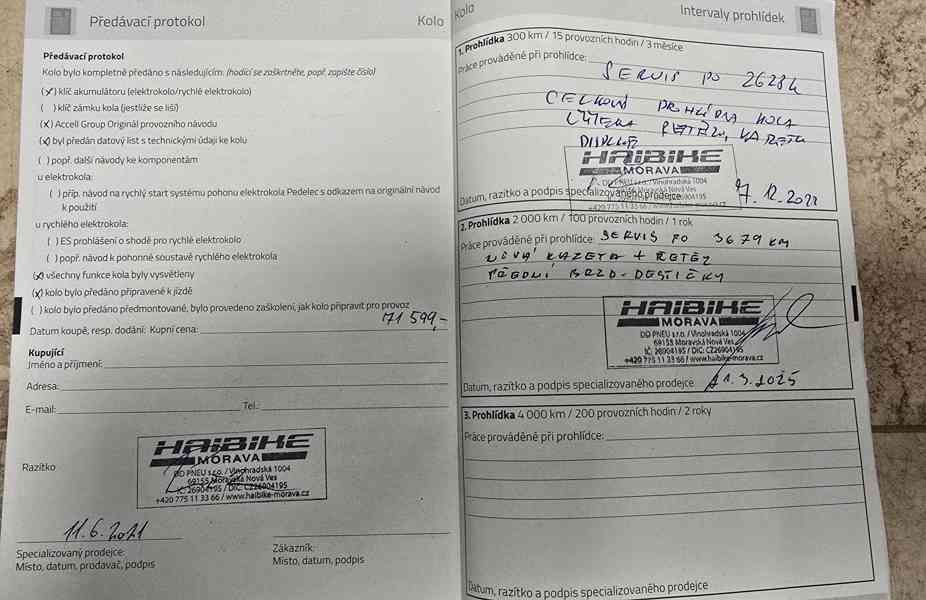 Předávací protokol
Kolo
Předávací protokol
Kolo bylo kompletně předáno s následujícím: (hodící se zaškrtněte, popř. zapište číslo)
(x) klíč akumulátoru (elektrokolo/rychlé elektrokolo)
( ) klíč zámku kola (jestliže se liší)
(x) Accell Group Originál provozního návodu
(x) byl předán datový list s technickými údaji ke kolu
( ) popř. další návody ke komponentám
u elektrokola:
( ) příp. návod na rychlý start systému pohonu elektrokola Pedelec s odkazem na originální návod
k použití
u rychlého elektrokola:
( ) ES prohlášení o shodě pro rychlé elektrokolo
( ) popř. návod k pohonné soustavě rychlého elektrokola
(x) všechny funkce kola byly vysvětleny
(x) kolo bylo předáno připravené k jízdě
( ) kolo bylo předáno předmontované, bylo provedeno zaškolení, jak kolo připravit pro provoz
Datum koupě, resp. dodání: Kupní cena: 71 599,-
Kupující
Jméno a příjmení:
Adresa:
E-mail: Tel.:
Razítko
HAIBIKE
MORAVA
DD PNEU s.r.o. / Vinohradská 1004
69155 Moravská Nová Ves
IČ: 26904195 / DIČ: CZ26904195
+420 775 11 33 66 / www.haibike-morava.cz
11.6.2021
Specializovaný prodejce:
Místo, datum, prodavač, podpis
Zákazník:
Místo, datum, podpis
Kolo
Intervaly prohlídek
1. Prohlídka 300 km / 15 provozních hodin / 3 měsíce
Práce prováděné při prohlídce:
SERVIS PO 2628 k
CELKOVÁ PROHLÍDKA KOLA
ŘETĚZU, KAZETY
HAIBIKE
MORAVA
DD PNEU s.r.o. / Vinohradská 1004
69155 Moravská Nová Ves
+420 775 11 33 66 / www.haibike-morava.cz
Datum, razítko a podpis specializovaného prodejce
2. Prohlídka 2 000 km / 100 provozních hodin / 1 rok
Práce prováděné při prohlídce: SERVIS PO 3679 KM
NOVÁ KAZETA + ŘETĚZ
PŘEDNÍ BRZD. DESTIČKY
HAIBIKE
MORAVA
DD PNEU s.r.o. / Vinohradská 1004
69155 Moravská Nová Ves
IČ: 26904195 / DIČ: CZ26904195
+420 775 11 33 66 / www.haibike-morava.cz
Datum, razítko a podpis specializovaného prodejce 21.3.2025
3. Prohlídka 4 000 km / 200 provozních hodin / 2 roky
Práce prováděné při prohlídce:
Datum, razítko a podpis specializovaného prodejce